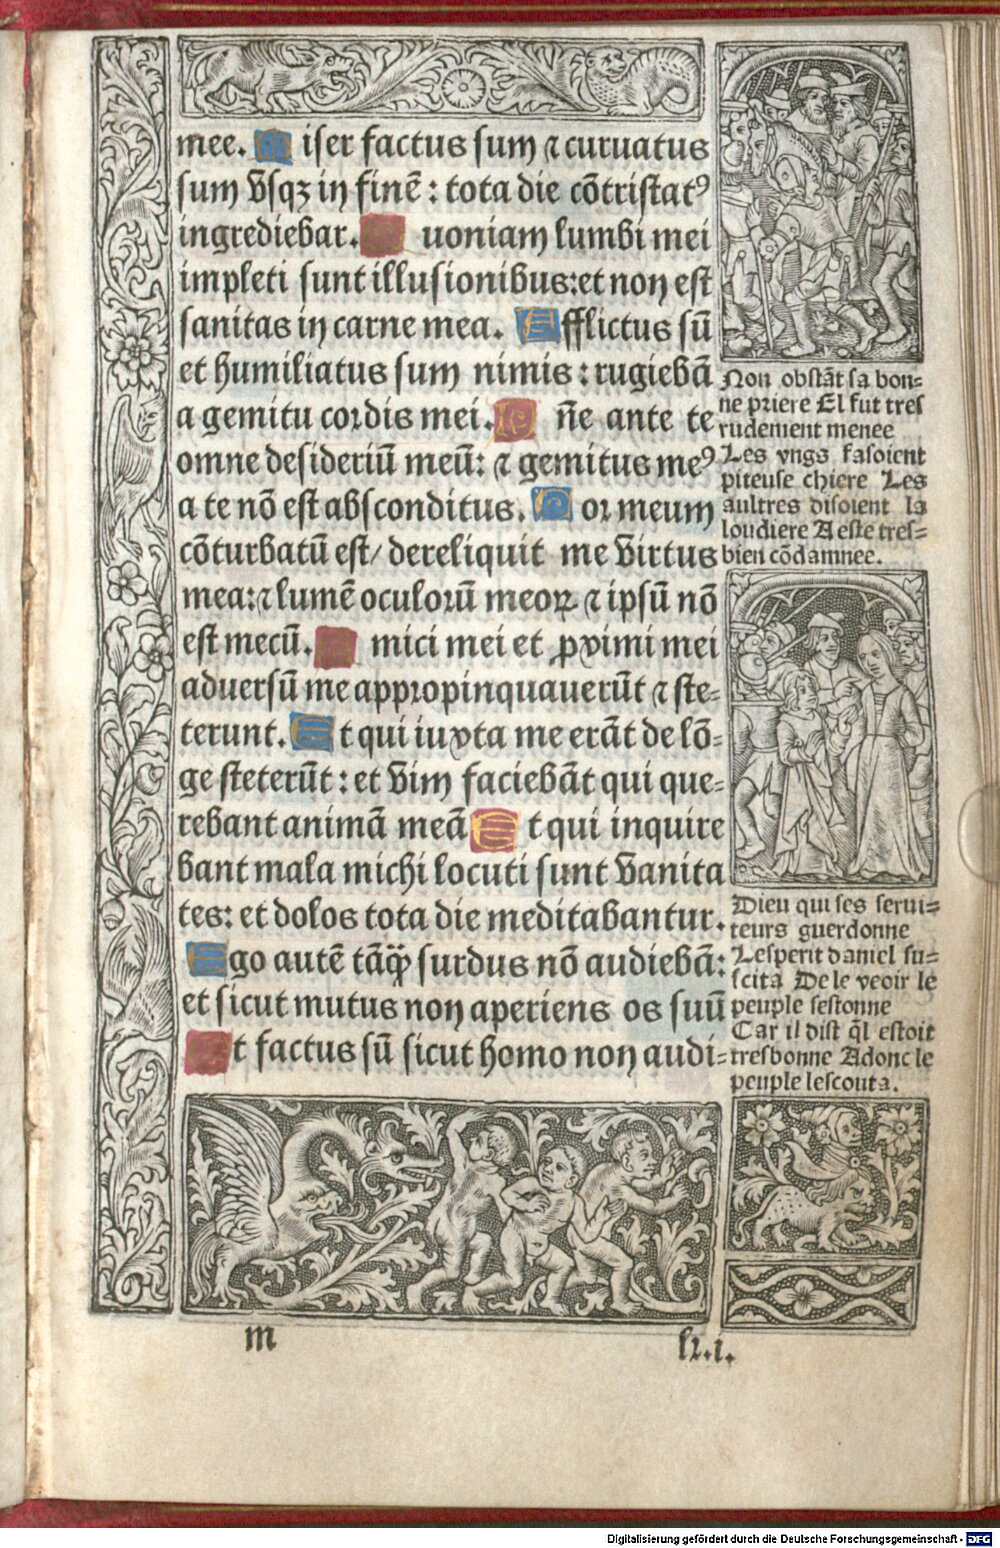 mee. Miser factus sum ⁊ curuatus
sum vsqꝫ in finē : tota die cōtristatꝰ
ingrediebar. Quoniam lumbi mei
impleti sunt illusionibus: et non est
sanitas in carne mea. Afflictus sū
et humiliatus sum nimis : rugiebā
a gemitu cordis mei. Dñe ante te
omne desideriū meū: ⁊ gemitus meꝰ
a te nō est absconditus. Cor meum
cōturbatū est/ dereliquit me virtus
mea: ⁊ lumē oculorū meoꝝ ⁊ ipsū nō
est mecū. Amici mei et ꝓximi mei
aduersū me appropinquauerūt ⁊ ste=
terunt. Et qui iuxta me erāt de lō=
ge steterūt : et vim faciebāt qui que=
rebant animā meā Et qui inquire
bant mala michi locuti sunt vanita
tes: et dolos tota die meditabantur.
Ego autē tāꝙ̄ surdus nō audiebā:
et sicut mutus non aperiens os suū
Et factus sū sicut homo non audi=
Non obstāt sa bon=
ne priere El fut tres
rudement menee
Les vngs fasoient
piteuse chiere Les
aultres disoient la
loudiere A este tres=
bien cōdamnee.
Dieu qui ses serui=
teurs guerdonne
Lesperit daniel su=
scita De le veoir le
peuple sestonne
Car il dist q̄l estoit
tresbonne Adonc le
peuple lescouta.
m
lx.i.
Digitalisierung gefördert durch die Deutsche Forschungsgemeinschaft - DFG